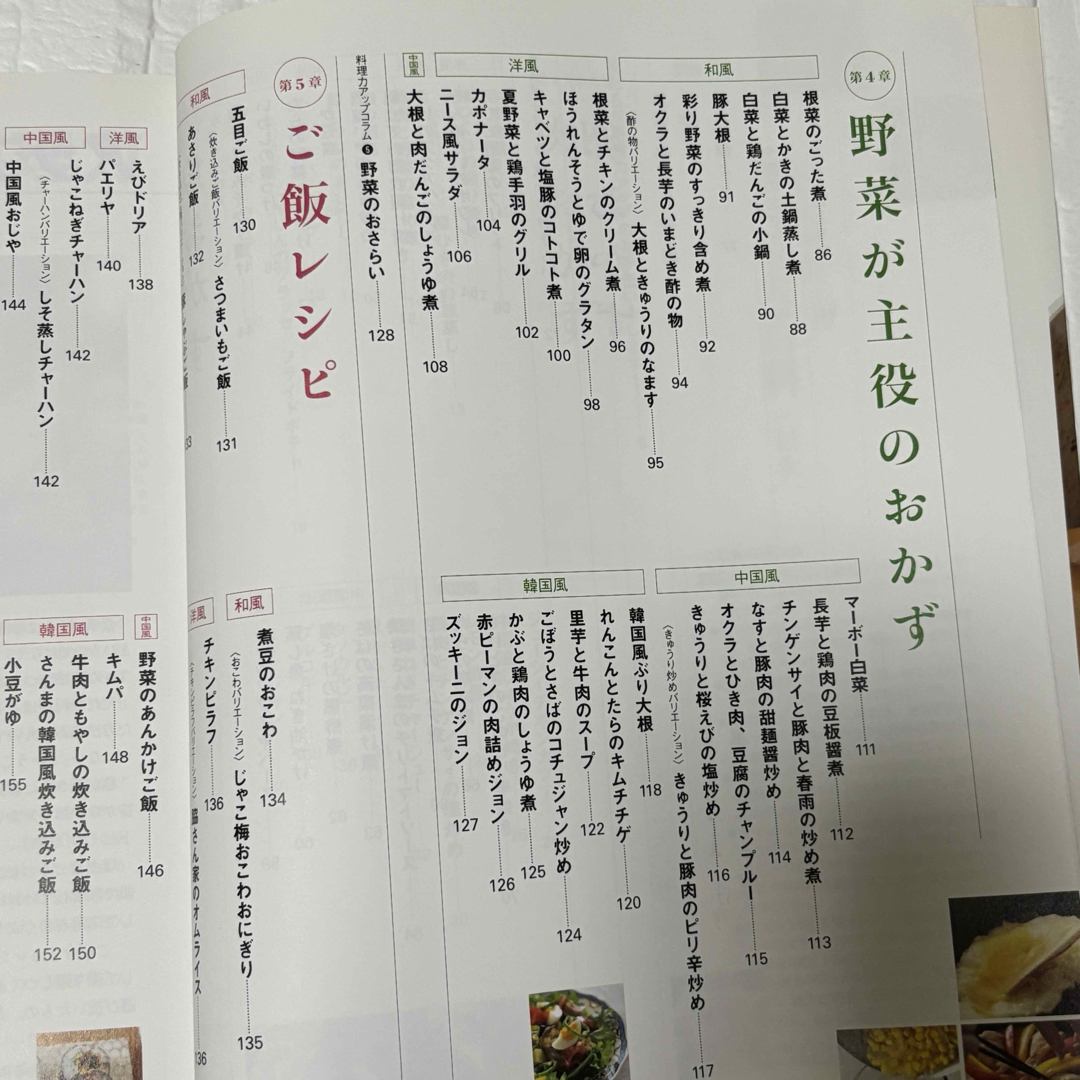 第4章
野菜が主役のおかず
和風
根菜のごった煮 86
白菜とかきの土鍋蒸し煮 88
白菜と鶏だんごの小鍋 90
豚大根 91
彩り野菜のすっきり含め煮 92
オクラと長芋のいまどき酢の物 94
〈酢の物バリエーション〉大根ときゅうりのなます 95
洋風
根菜とチキンのクリーム煮 96
ほうれんそうとゆで卵のグラタン 98
キャベツと塩豚のコトコト煮 100
夏野菜と鶏手羽のグリル 102
カポナータ 104
ニース風サラダ 106
中国風
大根と肉だんごのしょうゆ煮 108
中国風
マーボー白菜 111
長芋と鶏肉の豆板醤煮 112
チンゲンサイと豚肉と春雨の炒め煮 113
なすと豚肉の甜麺醤炒め 114
オクラとひき肉、豆腐のチャンプルー 115
きゅうりと桜えびの塩炒め 116
〈きゅうり炒めバリエーション〉きゅうりと豚肉のピリ辛炒め 117
韓国風
韓国風ぶり大根 118
れんこんとたらのキムチチゲ 120
里芋と牛肉のスープ 122
ごぼうとさばのコチュジャン炒め 124
かぶと鶏肉のしょうゆ煮 125
赤ピーマンの肉詰めジョン 126
ズッキーニのジョン 127
料理力アップコラム❺ 野菜のおさらい 128
第5章
ご飯レシピ
和風
五目ご飯 130
〈炊き込みご飯バリエーション〉さつまいもご飯 131
あさりご飯 132
和風
煮豆のおこわ 134
〈おこわバリエーション〉じゃこ梅おこわおにぎり 135
洋風
チキンピラフ 136
〈チキンピラフバリエーション〉脇さん家のオムライス 136
洋風
えびドリア 138
パエリヤ 140
中国風
じゃこねぎチャーハン 142
〈チャーハンバリエーション〉しそ蒸しチャーハン 142
中国風おじや 144
中国風
野菜のあんかけご飯 146
韓国風
キムパ 148
牛肉ともやしの炊き込みご飯 150
さんまの韓国風炊き込みご飯 152
小豆がゆ 155